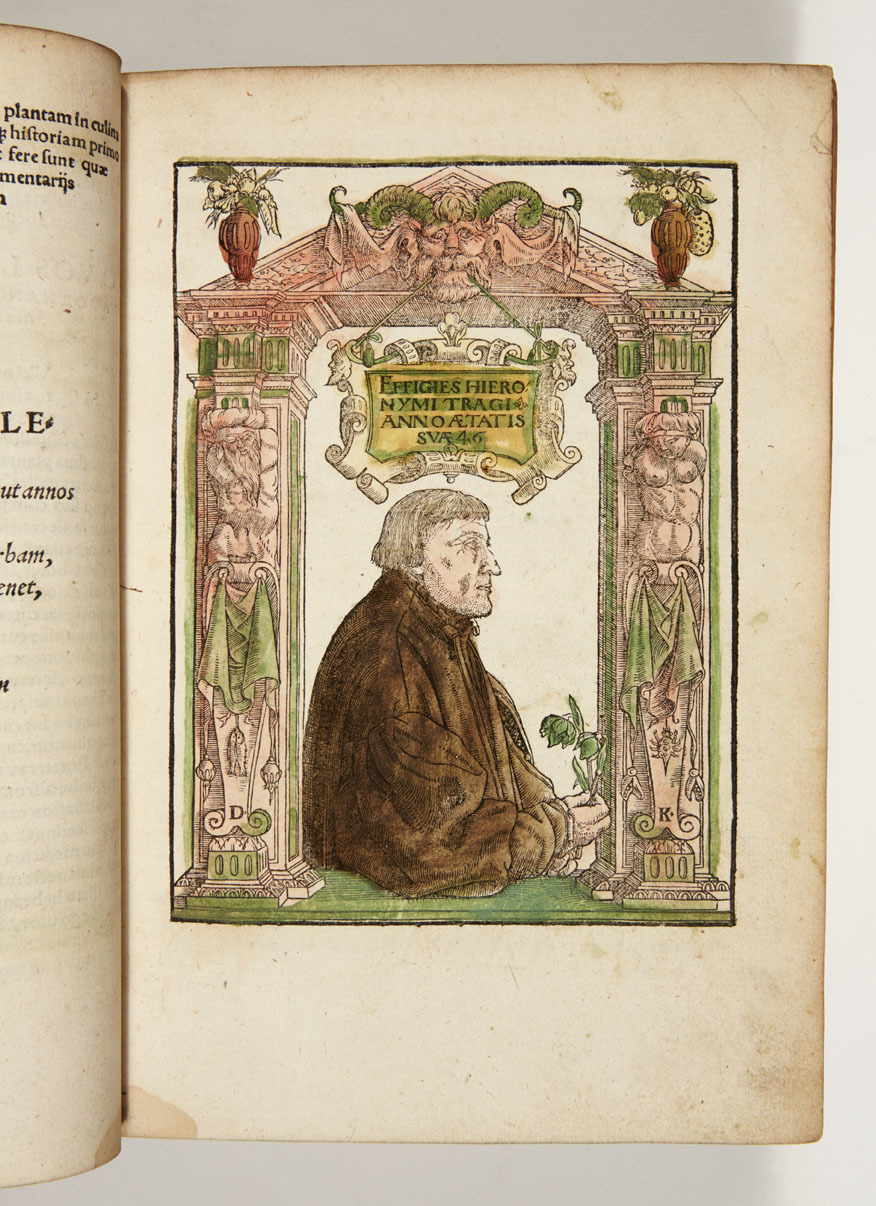 plantam in culina
historiam primo
fere sunt quæ
mentarijs
LE
ut annos
bam,
enet,
EFFIGIES HIERO
NYMI TRAGI
ANNO ÆTATIS
SVÆ 46
D.
K.